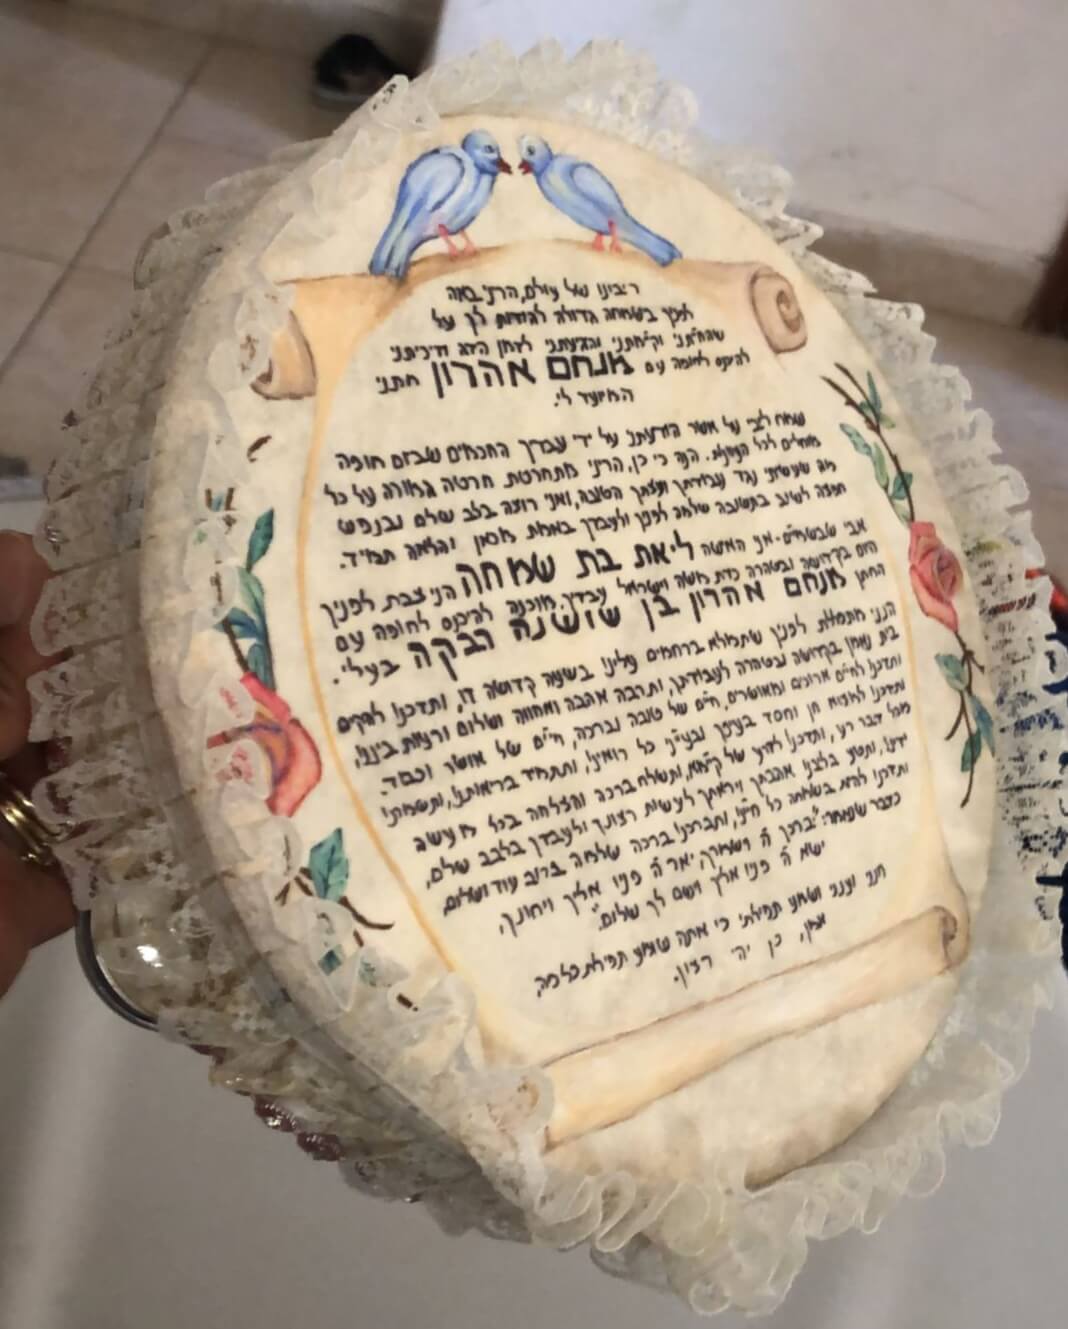 ריבונו של עולם, הריני באה
לפניך בשמחה גדולה להודות לך על
שהחייתני וקיימתני והגעתני לזמן הזה וזיכיתני
להיכנס לחופה עם מנחם אהרון חתני
המיועד לי.
שמח ליבי על אשר הודעתני על ידי עבדיך החכמים שביום חופה
מוחלים לכל העוונות. הנה כי כן, הריני מתחרטת חרטה גמורה על כל
מה שעשיתי נגד עבודתך ועצתך הטובה, ואני רוצה בלב שלם ובנפש
חפצה לשוב בתשובה שלמה לפניך ולעבדך באמת מכאן והלאה תמיד.
אבי שבשמים - אני האשה ליאת בת שמחה הניצבת לפניך
היום בקדושה ובטהרה כדת משה וישראל עבדיך, מוכנה להיכנס לחופה עם
החתן מנחם אהרון בן שושנה רבקה בעלי.
הנני מתפללת לפניך שתמלא ברחמים עלינו בשעה קדושה זו, ותזכנו להקים
בית נאמן בקדושה ובטהרה לעבודתך, ותרבה אהבה ואחווה ושלום ורעות ביננו,
ותזכנו לחיים ארוכים ומאושרים, חיים של טובה וברכה, חיים של אושר וכבוד.
ותזכנו למצוא חן וחסד בעיניך ובעיני כל רואינו, ותתמיד בריאותנו, ותשמרנו
מכל דבר רע, ותזכנו לזרע של קיימא, ותשלח ברכה והצלחה בכל מעשה
ידינו, ותטע בלבנו אהבתך ויראתך לעשות רצונך ולעבדך בלבב שלם,
ותזכנו להיות בשמחה כל חיינו, ותברכנו ברכה שלמה ברוב עוז ושלום,
כדבר שנאמר: "יברכך ה' וישמרך, יאר ה' פניו אליך ויחונך,
ישא ה' פניו אליך וישם לך שלום".
חנני וענני ושמע תפילתי כי אתה שומע תפילת כל פה,
אמן, כן יהי רצון.